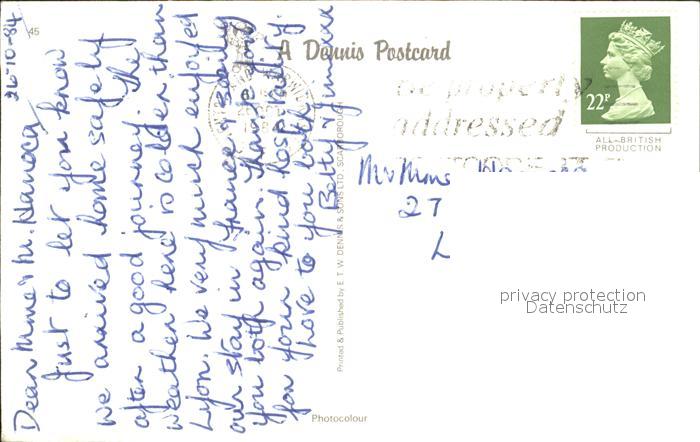 45
26-10-84
Dear Mme & M. Hanoca
Just to let you know
we arrived home safely
after a good journey. The
weather here is colder than
Lyon. We very much enjoyed
our stay in France & seeing
you both again. Thank you
for your kind hospitality.
Love to you both
Betty & Jimmas
A Dennis Postcard
Printed & Published by E. T. W. DENNIS & SONS LTD., SCARBOROUGH
Photocolour
property
addressed
22P
ALL-BRITISH
PRODUCTION
M & Mme
27
L
privacy protection
Datenschutz